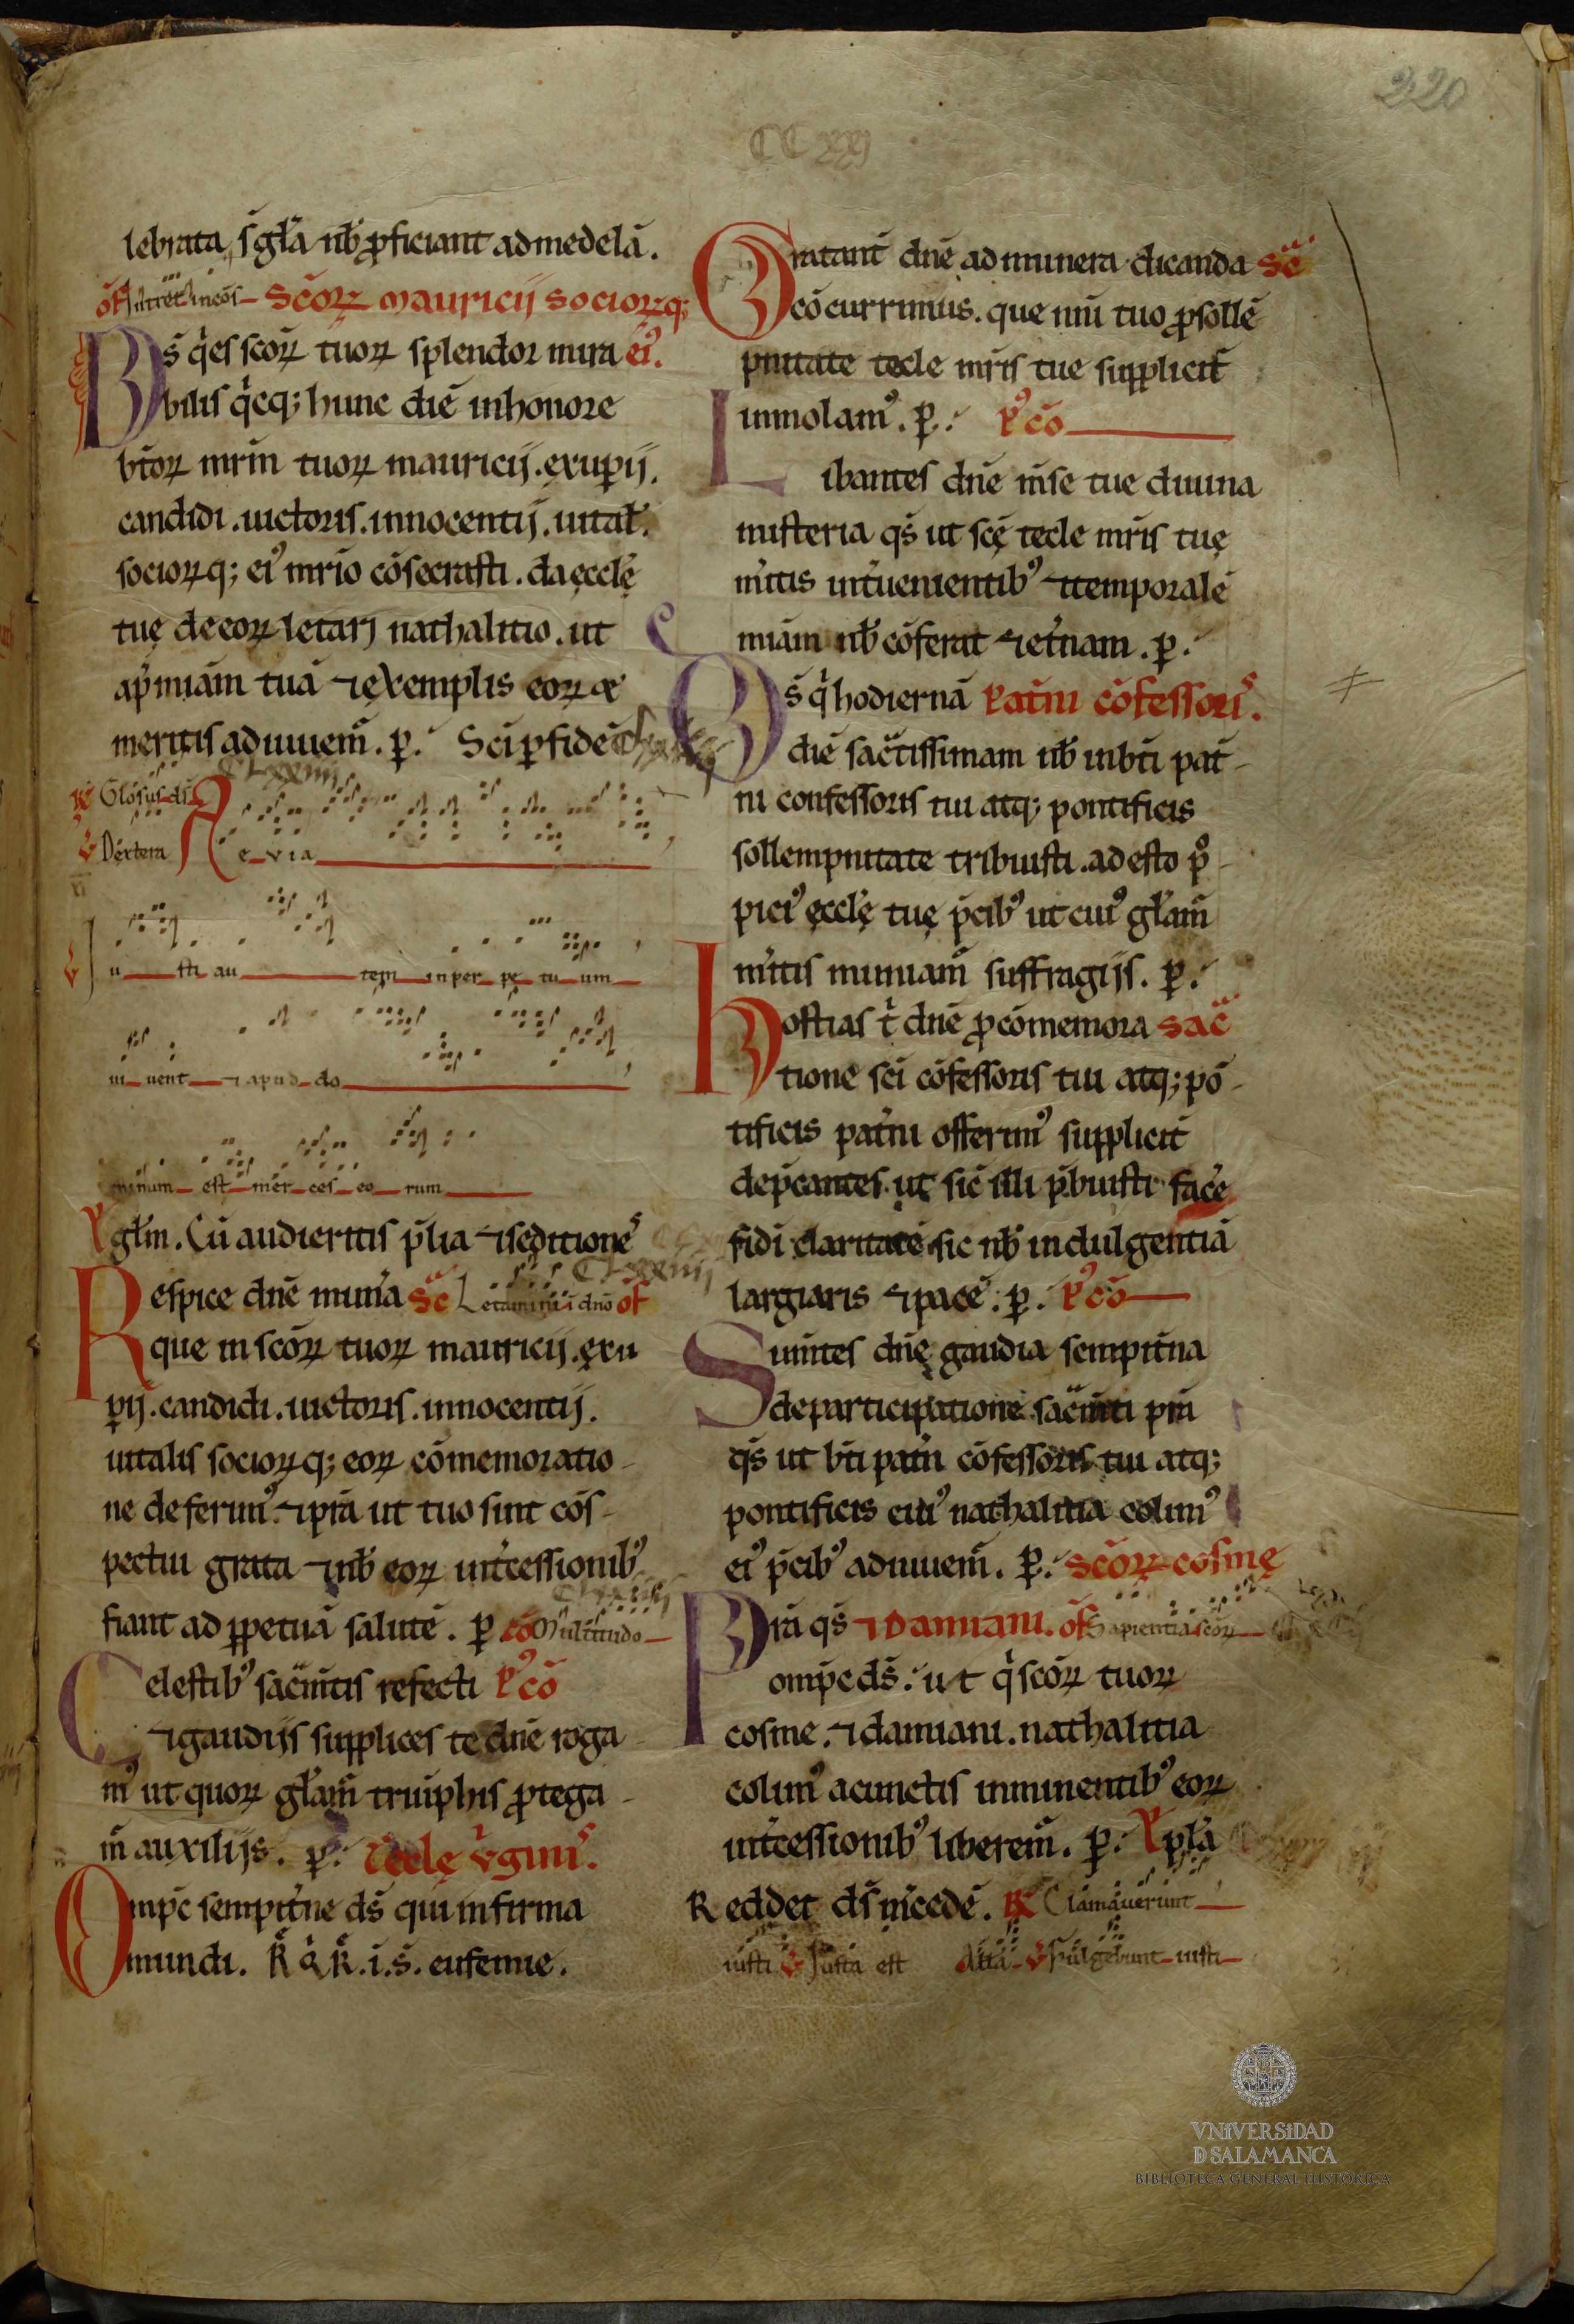 220
CCXXJ
lebrata, s̄ gl̄a nb̄ ꝓficiant ad medelā.
of̄ Intret in cōs Sc̄oꝝ mauricij socioꝝq;
Ds̄ q̇ es sc̄oꝝ tuoꝝ splendor mira eiꝰ.
bilis q̇cq; hunc diē in honore
bt̄oꝝ mr̄m tuoꝝ mauricij. exuꝑij.
candidi. uictoris. innocentij. uital̄.
socioꝝq; eiꝰ mr̄io cōsecrasti. da ęccl̄ę
tuę de eoꝝ letari nathalitio. ut
ap̄ miām tuā ⁊ exemplis eoꝝ &
meritis adiuuem̄. ꝑ. Sc̄i ꝑ fidē
CLXXIIIJ
Gl̄osus ds̄
℣ Dextera Ae_v_i_a
℣ Iu sti au tem in per pe tu um
ui uent ⁊ apud do
minum est mer ces eo rum
gl̄m. Cū audieritis p̄lia ⁊ seditionēs
CLXXIIIJ
Respice dn̄e mun̄a sc̄ Letamini ī dn̄o of̄
que in sc̄oꝝ tuoꝝ mauricij. exu
ꝑij. candidi. uictoris. innocentij.
uitalis socioꝝq; eoꝝ cōmemoratio
ne deferimꝰ. ⁊ p̄sta ut tuo sint cōs
pectui grata ⁊ nb̄ eoꝝ int̄cessionibꝰ
fiant ad ꝑpetuā salutē. ꝑ cō Multitudo
Celestibꝰ sac̄m̄tis refecti Pꝰcō
⁊ gaudijs supplices te dn̄e roga
mꝰ ut quoꝝ gl̄am̄ truiphis ꝓtega
m̄ auxilijs. ꝑ. Tecle v̇giniˢ.
Omp̄c sempit̄ne ds̄ qui infirma
mundi. R̄ q̇ R̄. i. s̄. eufemie.
Gratant̄ dn̄e ad munera dicanda sc̄
cōcurrimus. que nīn tuo ꝓ sollē
pnitate tecle mr̄is tue supplicit̄
inmolamꝰ. ꝑ. Pꝰcō
Libantes dn̄e m̄se tue diuina
misteria qs̄ ut sc̄ę tecle mr̄is tuę
m̄itis int̄uenientibꝰ ⁊ temporalē
miām nb̄ cōferat ⁊ et̄nam. ꝑ.
Ds̄ q̇ hodiernā Pat̄ni cōfessoriˢ.
diē sac̄tissimam nb̄ in bt̄i pat̄
ni confessoris tui atq; pontificis
sollempnitate tribuisti. adesto ꝓ
piciꝰ ęccl̄ę tuę p̄cibꝰ ut cuiꝰ gl̄am̄
m̄itis muniam̄ suffragijs. ꝑ.
Hostias t̄ dn̄e ꝓ cōmemora sac̄
tione sc̄i cōfessoris tui atq; pō
tificis pat̄ni offerimꝰ supplicit̄
dep̄cantes. ut sic̄ illi p̄buisti face
fidi claritatē. sic nb̄ indulgentiā
largiaris ⁊ pacē. ꝑ. Pꝰcō
Sum̄tes dn̄ę gaudia sempit̄na
de participatione sac̄m̄ti p̄m
qs̄ ut bt̄i pat̄ni cōfessoris tui atq;
pontificis cuiꝰ nathalitia colimꝰ
eiꝰ p̄cibꝰ adiuuem̄. ꝑ. Sc̄oꝝ cosmę
Pr̄a qs̄ ⁊ Damiani. of̄ Sapientiā sc̄oꝝ
omp̄c ds̄. ut q̇ sc̄oꝝ tuoꝝ
cosme. ⁊ damiani. nathalitia
colimꝰ a cunctis inminentibꝰ eoꝝ
int̄cessionibꝰ liberem̄. ꝑ. pl̄a
Reddet ds̄ m̄cedē. Clamauerunt
iusti ℣ Iusta est All̄a ℣ Fulgebunt iusti
VNiVERSiDAD
D SALAMANCA
BIBLIOTECA GENERAL HISTÓRICA